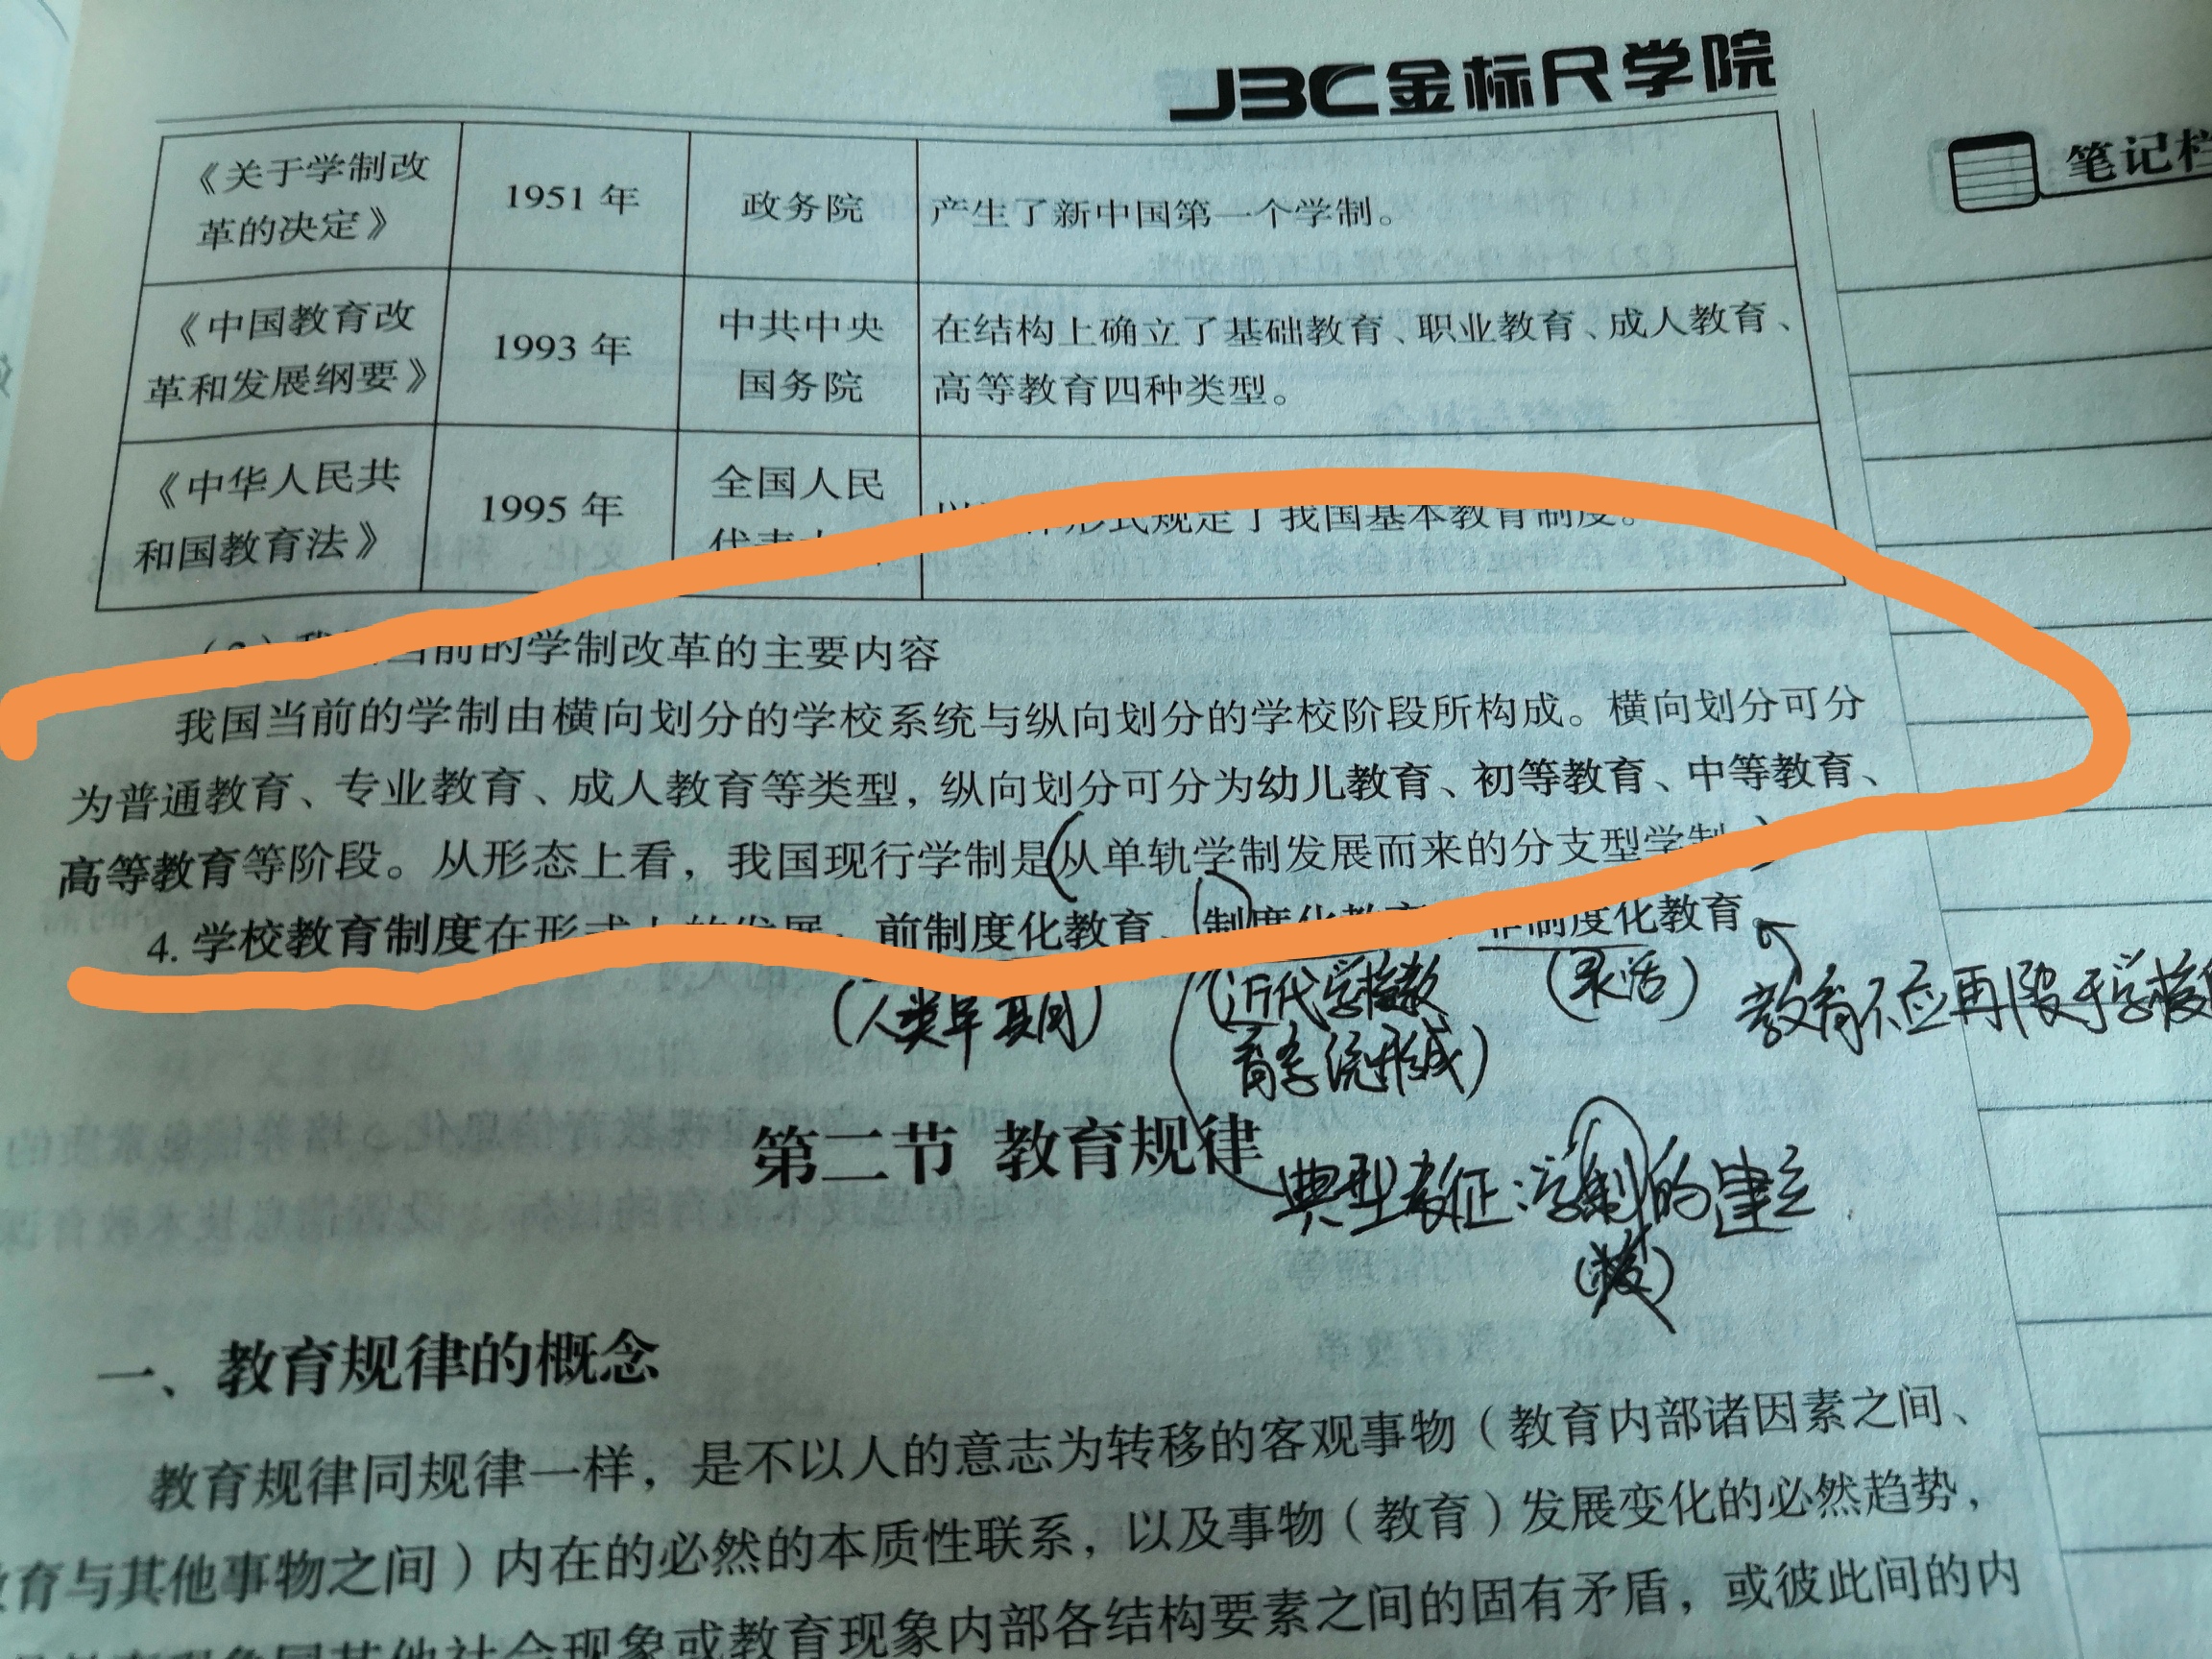 JBC金标尺学院
笔记栏
《关于学制改
革的决定》
1951 年
政务院
产生了新中国第一个学制。
《中国教育改
革和发展纲要》
1993 年
中共中央
国务院
在结构上确立了基础教育、职业教育、成人教育、
高等教育四种类型。
《中华人民共
和国教育法》
1995 年
全国人民
代表
形式规定了我国基本教育制度。
当前的学制改革的主要内容
我国当前的学制由横向划分的学校系统与纵向划分的学校阶段所构成。横向划分可分
为普通教育、专业教育、成人教育等类型，纵向划分可分为幼儿教育、初等教育、中等教育、
高等教育等阶段。从形态上看，我国现行学制是(从单轨学制发展而来的分支型学制)
4. 学校教育制度在形式上的发展：前制度化教育、制度化教育 非制度化教育。
(人类早期间)
(近代学校教
育系统形成)
(灵活)
教育不应再限于学校
第二节 教育规律
典型表征：学制的建立
一、教育规律的概念
教育规律同规律一样，是不以人的意志为转移的客观事物（教育内部诸因素之间、
育与其他事物之间）内在的必然的本质性联系，以及事物（教育）发展变化的必然趋势，
现象同其他社会现象或教育现象内部各结构要素之间的固有矛盾，或彼此间的内